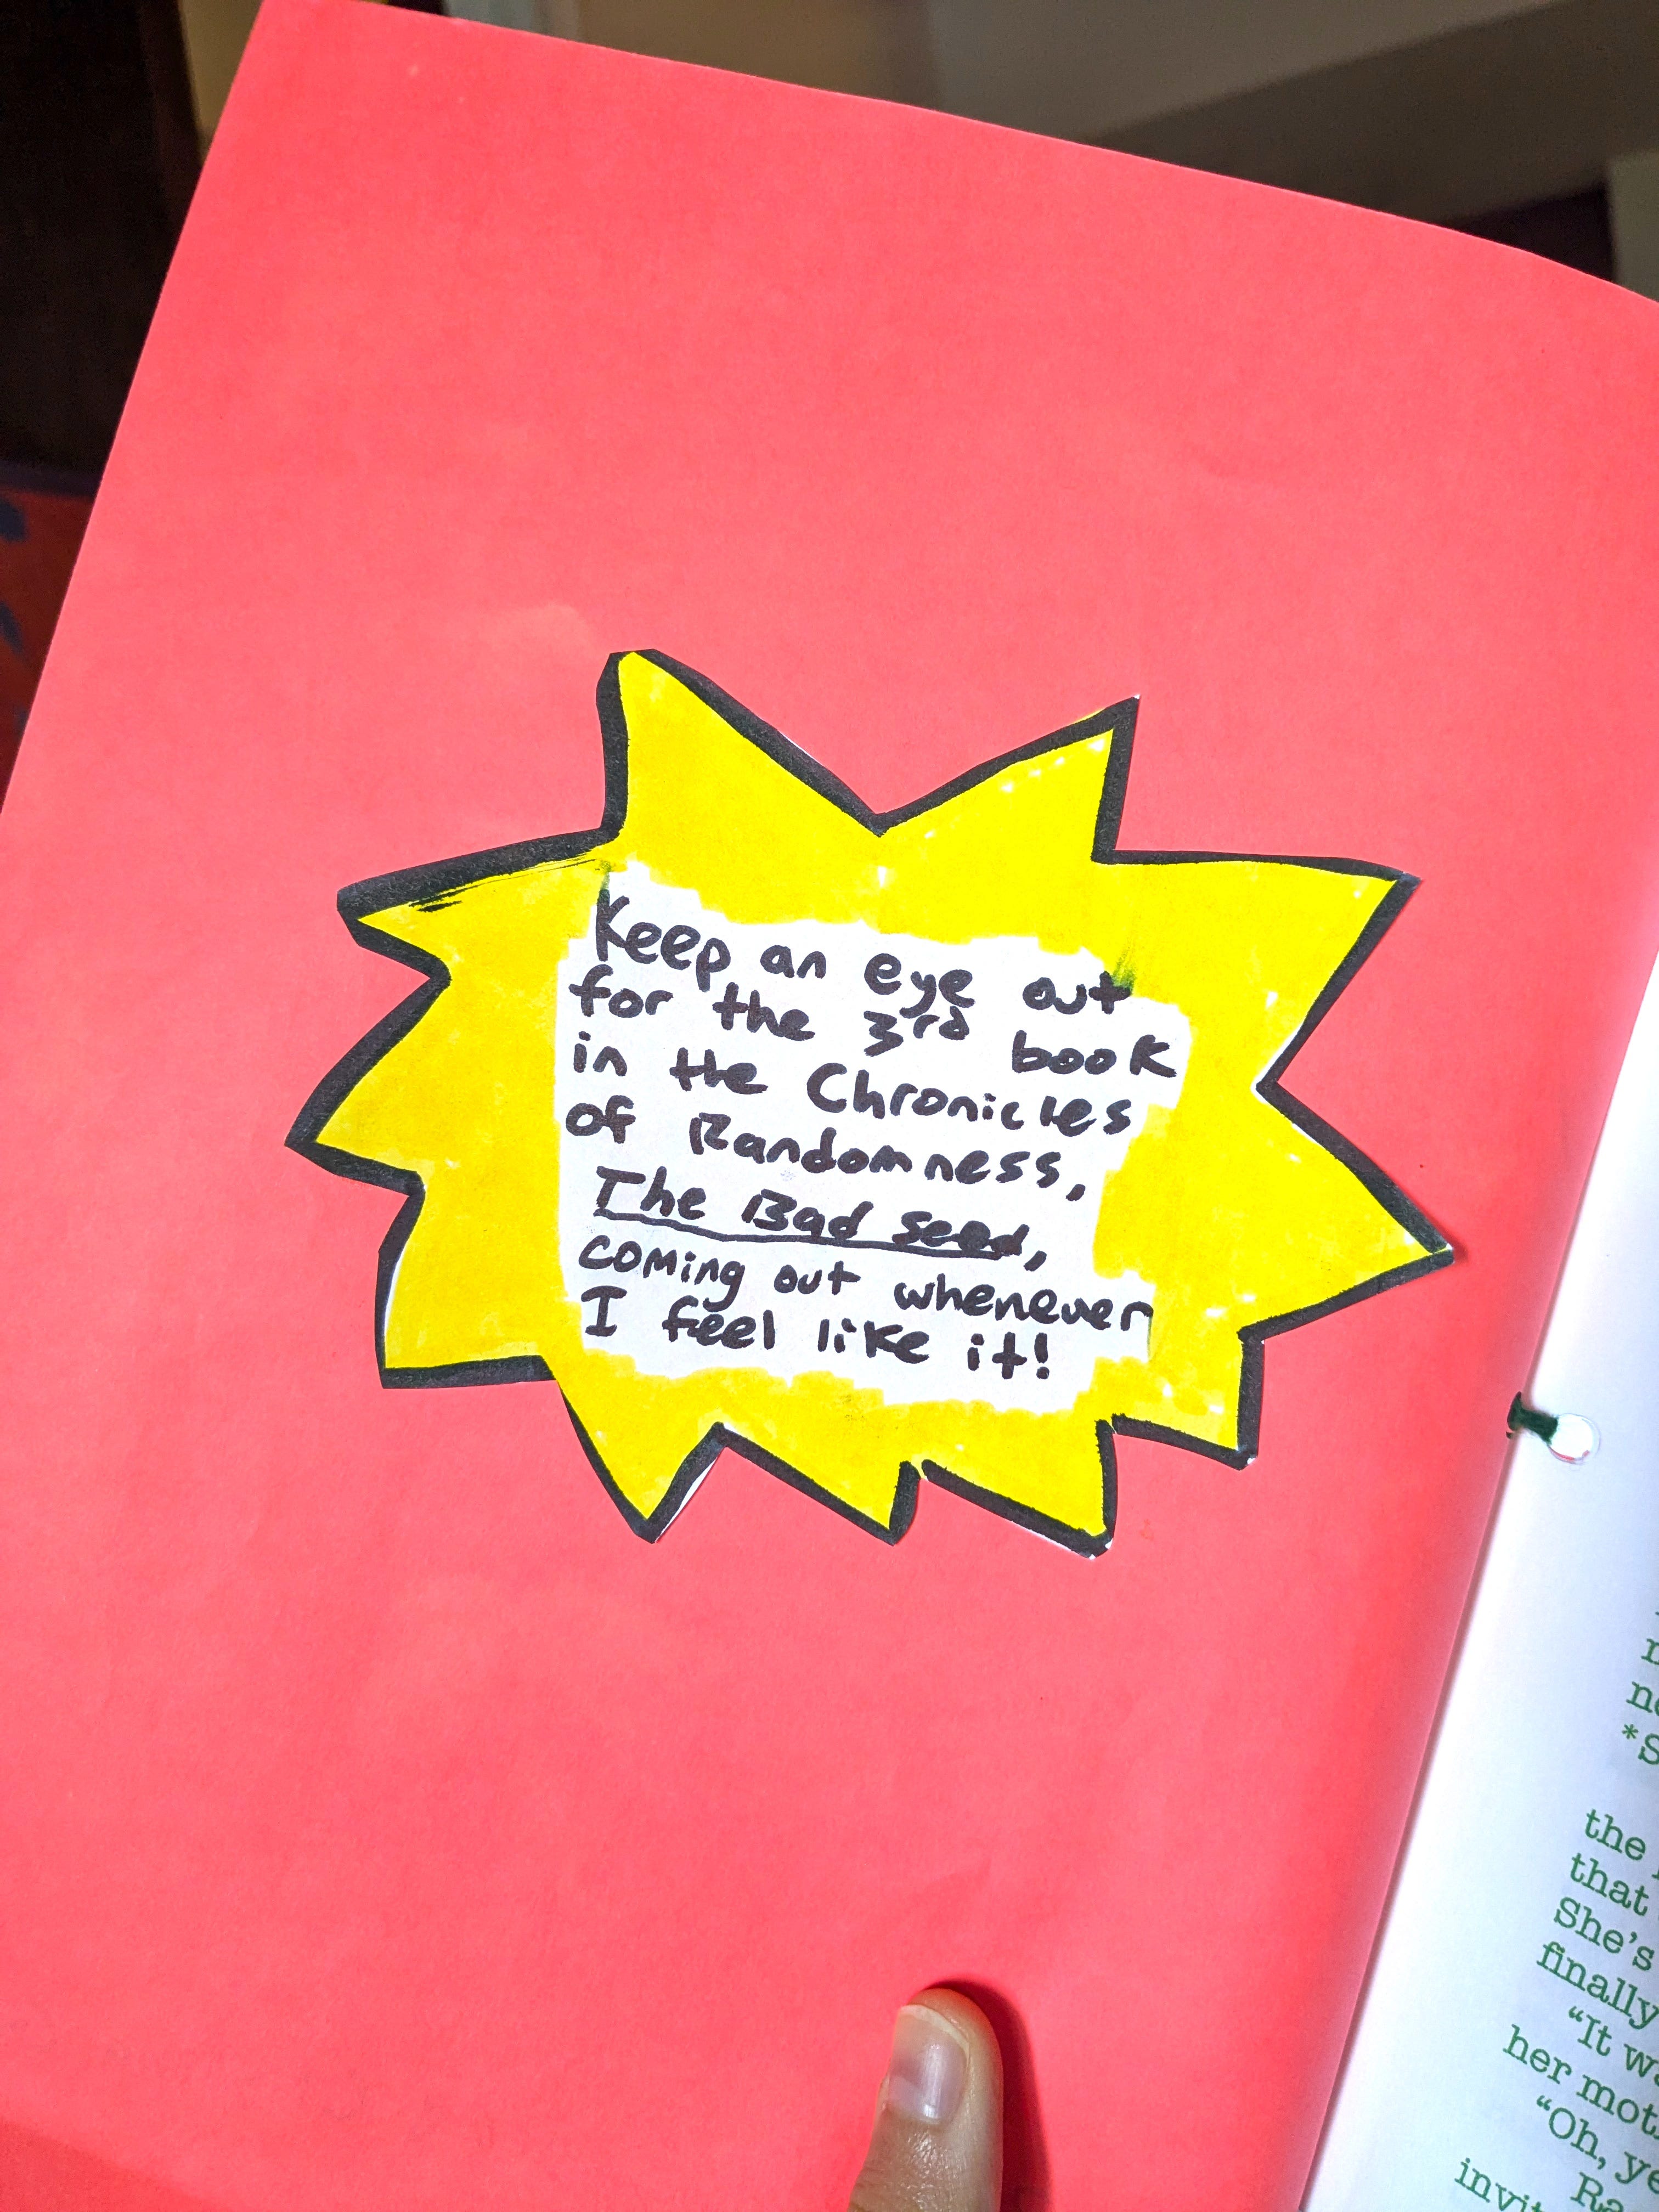 Keep an eye out
for the 3rd book
in the Chronicles
of Randomness,
The Bad Seed,
coming out whenever
I feel like it!
the
that
She's
finally
"It
her
"Oh,